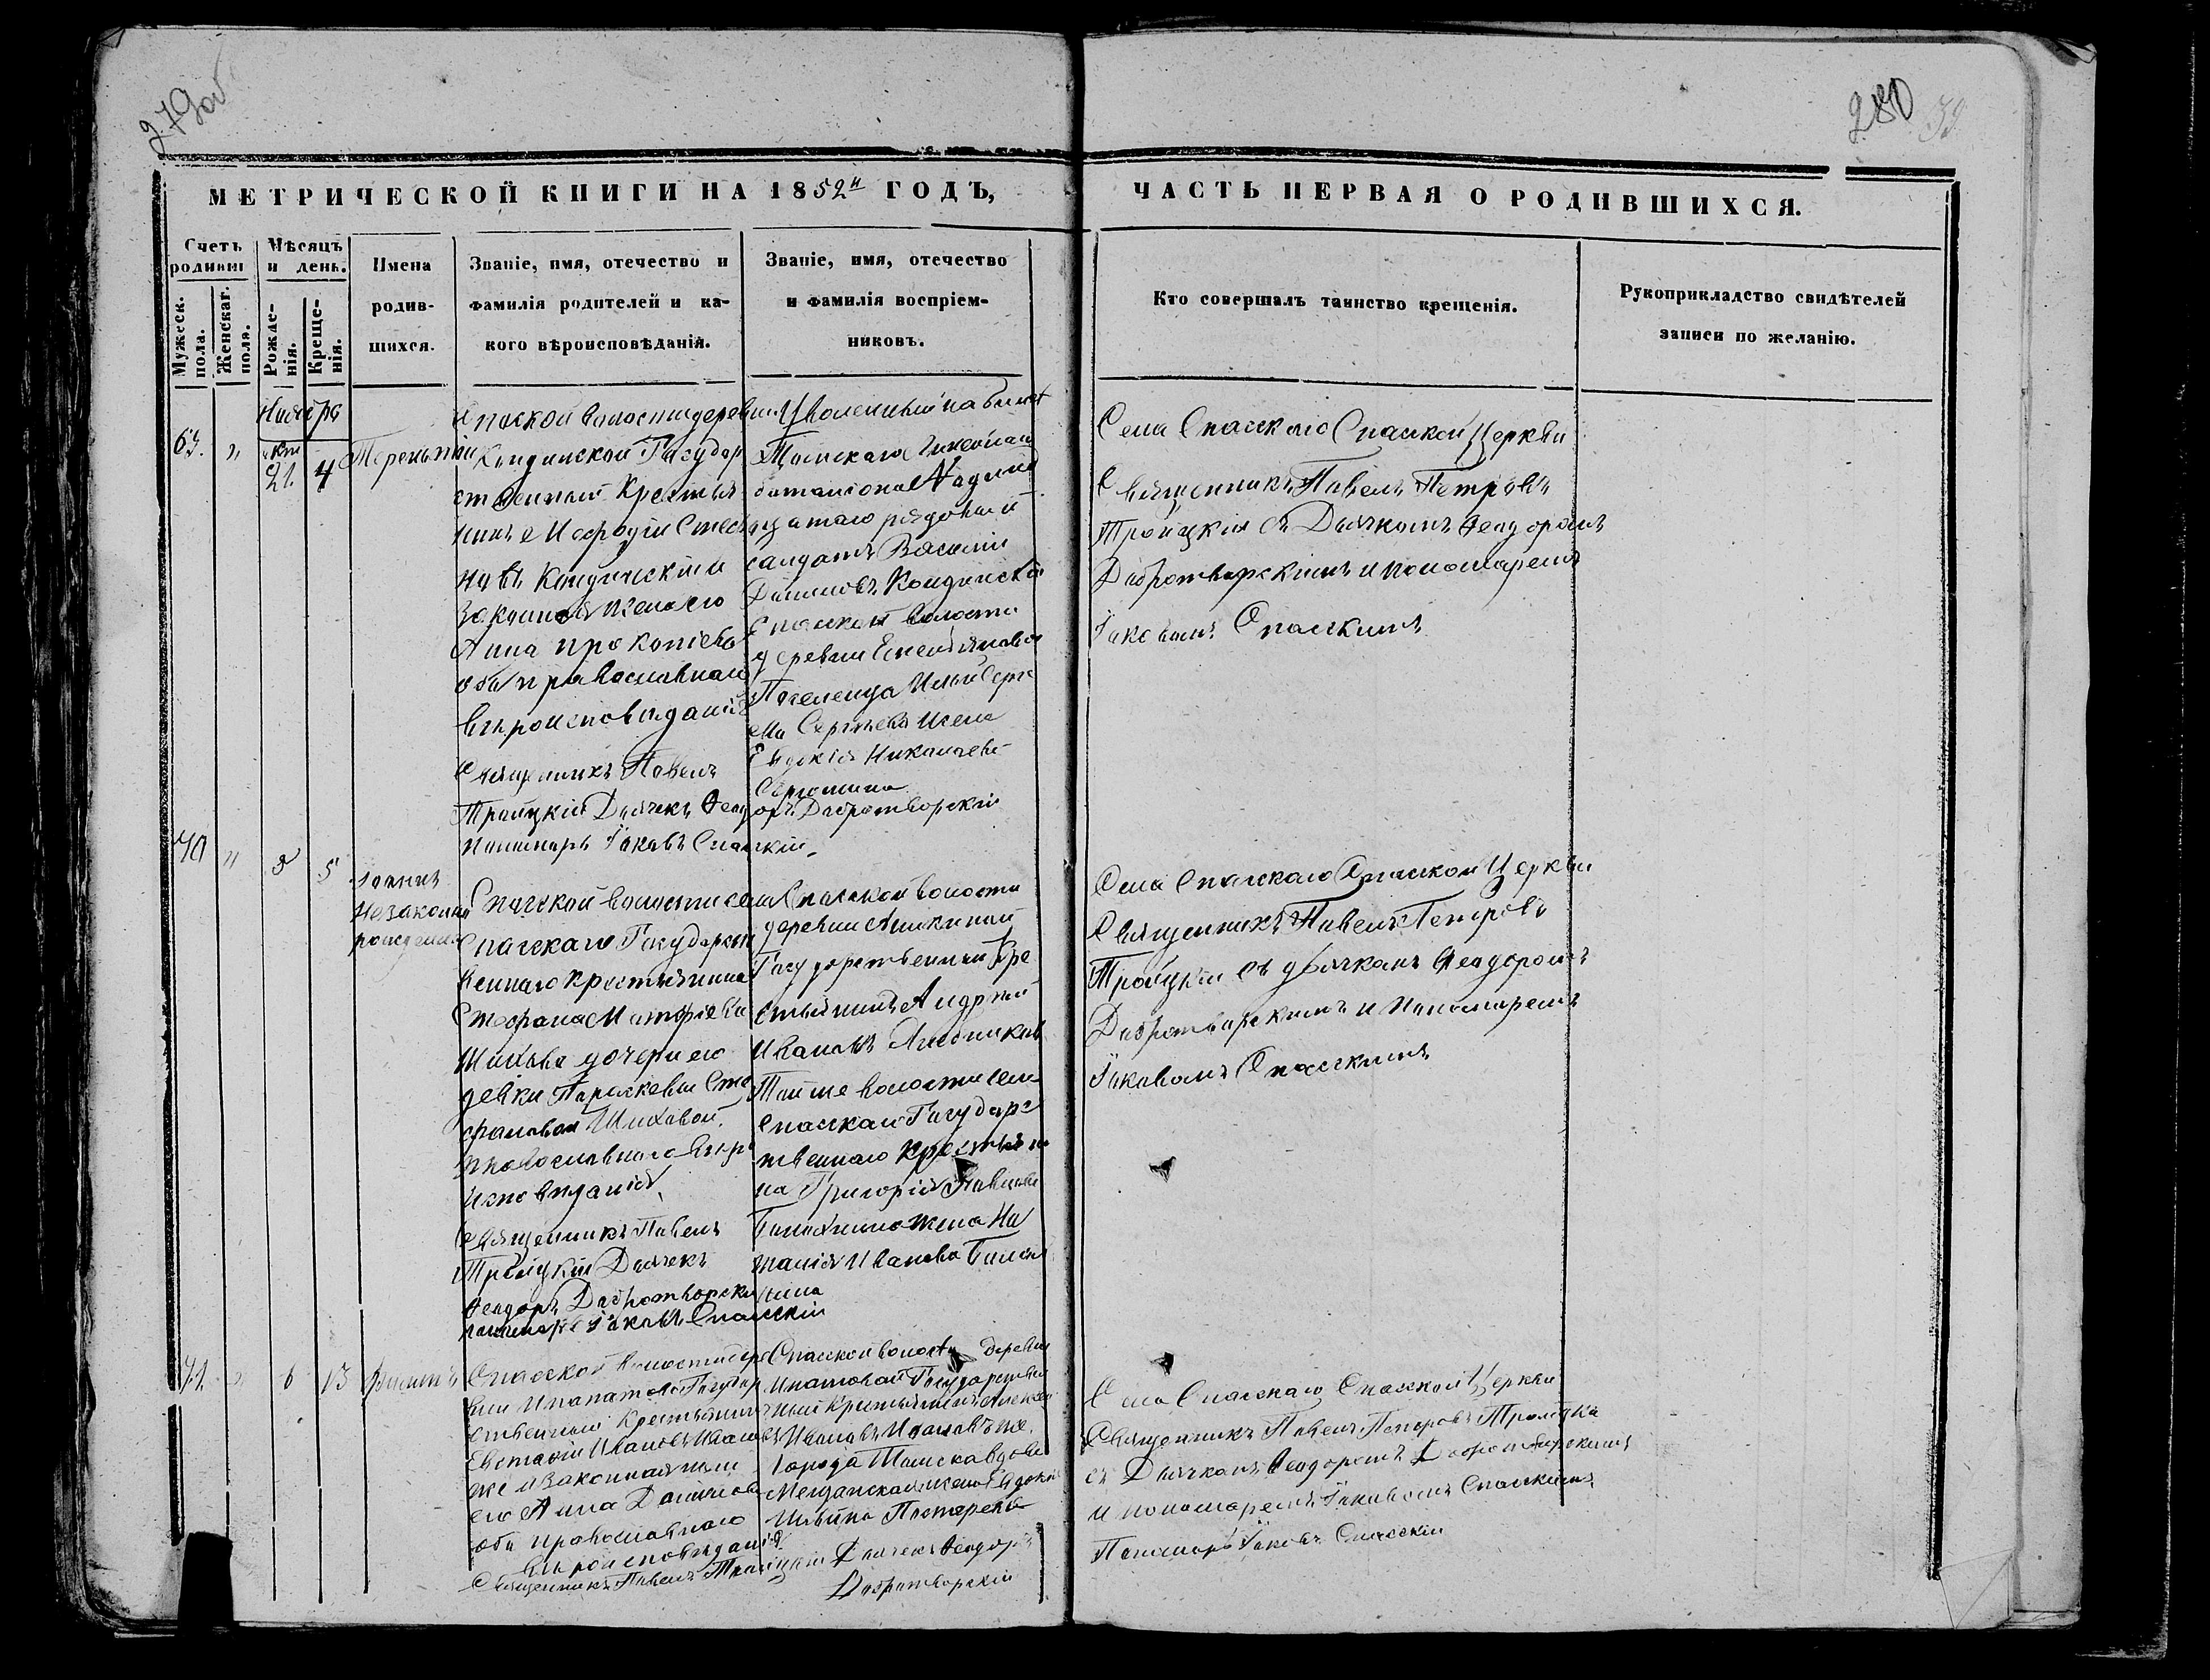 279 об
280
39
МЕТРИЧЕСКОЙ КНИГИ НА 1852й ГОДЪ,
ЧАСТЬ ПЕРВАЯ О РОДИВШИХСЯ.
Счетъ родивш
Мужеск. пола.
Женскаг. пола.
Мѣсяцъ и день.
Рожде-нія.
Креще-нія.
Имена
родив-
шихся.
Званіе, имя, отечество и
фамилія родителей и ка-
кого вѣроисповѣданія.
Званіе, имя, отечество
и фамилія воспріем-
никовъ.
Кто совершалъ таинство крещенія.
Рукоприкладство свидѣтелей
записи по желанію.
Ноября
окт
21. 4
Терентій
Спаской волости деревни
Кондинской Государ
ственный Крестья
нинъ
Кондинскій и
законная жена его
Анна Прокопіева
оба православнаго
вѣроисповѣданія
Священникъ Павелъ
Троицкій Дьячекъ Феодоръ Добротворскій
Пономарь Іаковъ Спаскій
Уволенный на билетъ
Томскаго Линейнаго
баталіона
рядовый
солдатъ Василій
Даниловъ Кондинскій
Спаской волости
деревни Емельяновой
Поселенца Ильи Серге
ева Сергѣева жена
Евдокія Николаева
Села Спаскаго Спаской Церкви
Священникъ Павелъ Петровъ
Троицкій съ Дьячкомъ Феодоромъ
Добротворскимъ и пономаремъ
Іаковомъ Спаскимъ
70 " 3 5
Іоаннъ
незаконно
рожденный
Спаской волости села
Спаскаго Государст
веннаго крестьянина
Стефана Матфіева
Шихова дочери его
девки Параскевы Сте
фановой Шиховой.
православнаго вѣро
исповѣданія
Священникъ Павелъ
Троицкій Дьячекъ
Феодоръ Добротворскій
пономарь Іаковъ Спаскій
Спаской волости
деревни Аникиной
Государственный Кре
стьянинъ Андрей
Ивановъ
Той же волости села
Спаскаго Государ
ственнаго Крестьяни
на Григорія Павлова
жена На
талія Иванова
Села Спаскаго Спаской Церкви
Священникъ Павелъ Петровъ
Троицкій съ дьячкомъ Феодоромъ
Добротворскимъ и Пономаремъ
Іаковомъ Спаскимъ
71 " 6 13
Филиппъ
Спаской волости дере
вни Ипатовой Государ
ственный Крестьянинъ
Евстафій Ивановъ Ивановъ
и законная жена
его Анна Данилова
оба православнаго
вѣроисповѣданія
Священникъ Павелъ Троицкій Дьячекъ Феодоръ
Добротворскій
Спаской волости деревни
Ипатовой Государствен
ный Крестьянинъ Алексѣй
Ивановъ Ивановъ же.
Города Томска вдова
Мещанская жена Евдокія
Села Спаскаго Спаской Церкви
Священникъ Павелъ Петровъ Троицкій
съ Дьячкомъ Феодоромъ Добротворскимъ
и пономаремъ Іаковомъ Спаскимъ.
Пономарь Іаковъ Спаскій